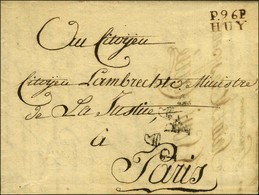 P.96.P
HUY
Au Citoyen
Citoyen Lambrechts Ministre
de La Justice
à
Paris